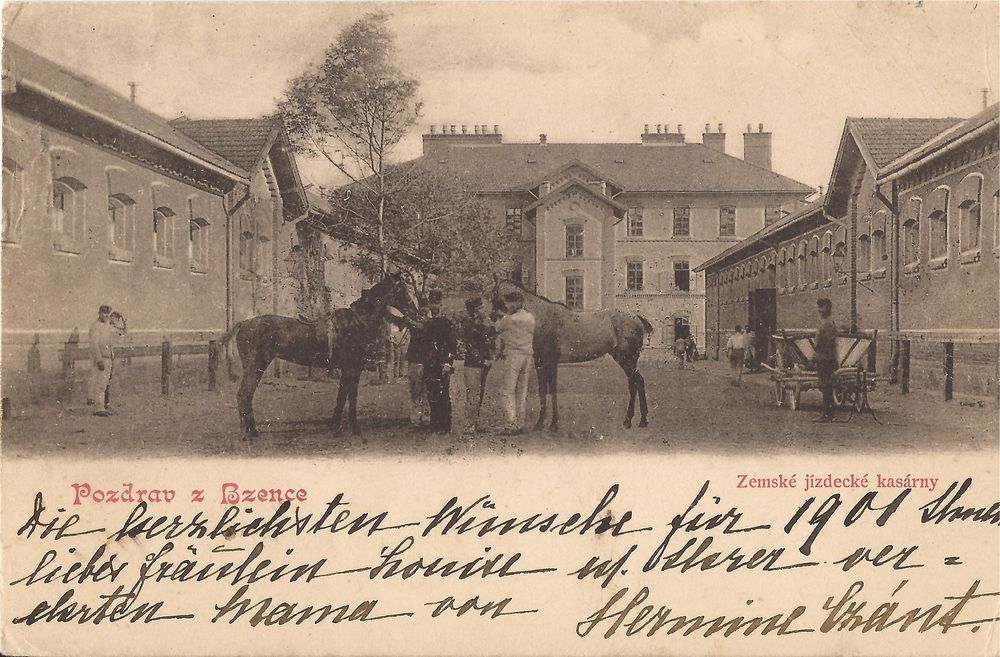 Pozdrav z Bzence
Zemské jízdecké kasárny
Die herzlichsten Wünsche für 1901 Ihnen
liebes Fräulein Louise u. Ihrer ver=
ehrten Mama von Hermine Czánt.